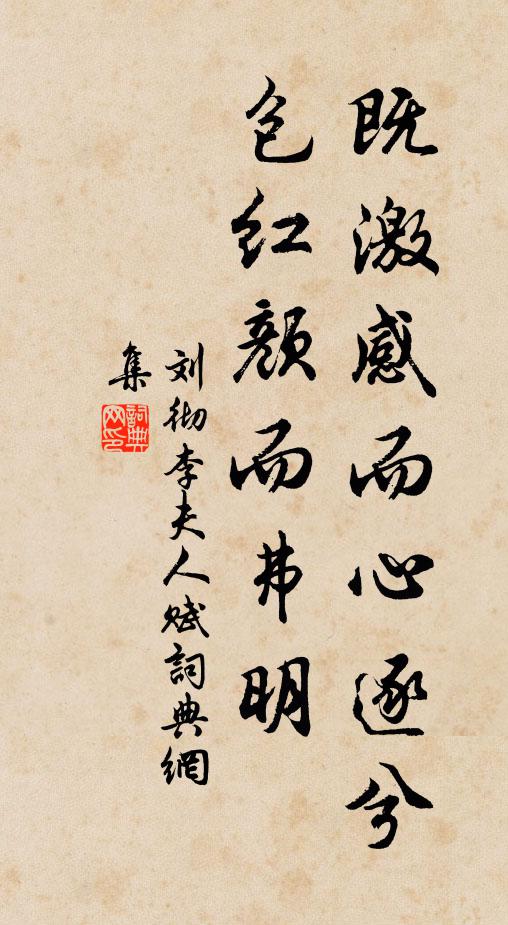 既激感而心逐兮
包红颜而弗明
刘彻李夫人赋詞典網
集
詞典网印